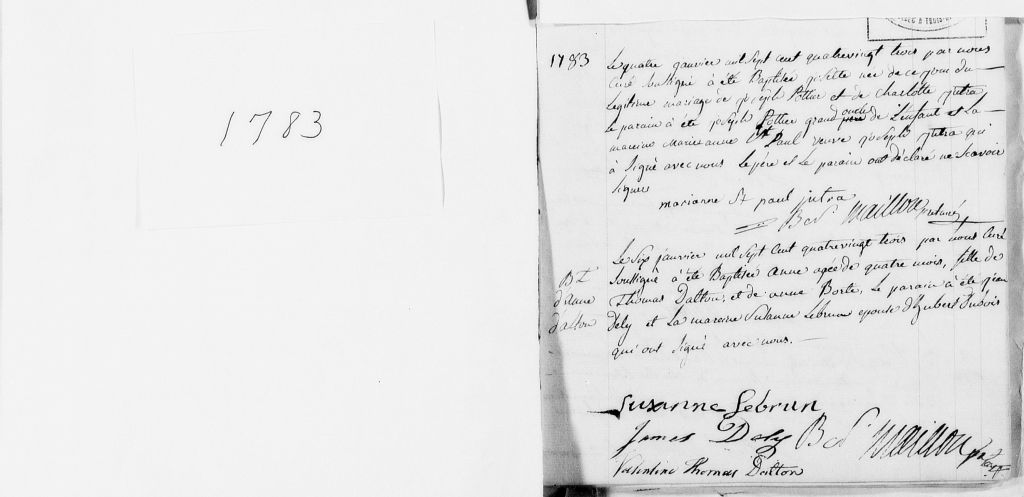 1783
1783
Le quatre janvier mil sept cent quatrevingt trois par nous
curé soussigné à été Baptisée josette née de ce jour du
Legitime mariage de joseph Pottier et de Charlotte jutra
Le parain à été joseph Pottier grand oncle de L'enfant et La
maraine Marie anne St Paul veuve joseph jutra qui
à signé avec nous Le père et Le parain ont déclaré ne scavoir
signer
marianne St paul jutra
Bd Maillou
Le six janvier mil sept cent quatrevingt trois par nous curé
soussigné à été Baptisée anne agée de quatre mois, fille de
B
d'anne
d'alton
Thomas Dalton, et de anne Borte, Le parain à été jean
Dely et La maraine Susanne Lebrun epouse d'hubert
qui ont signé avec nous.
Suzanne Lebrun
James Daly Bd Maillou
Valentine Thomas Dalton